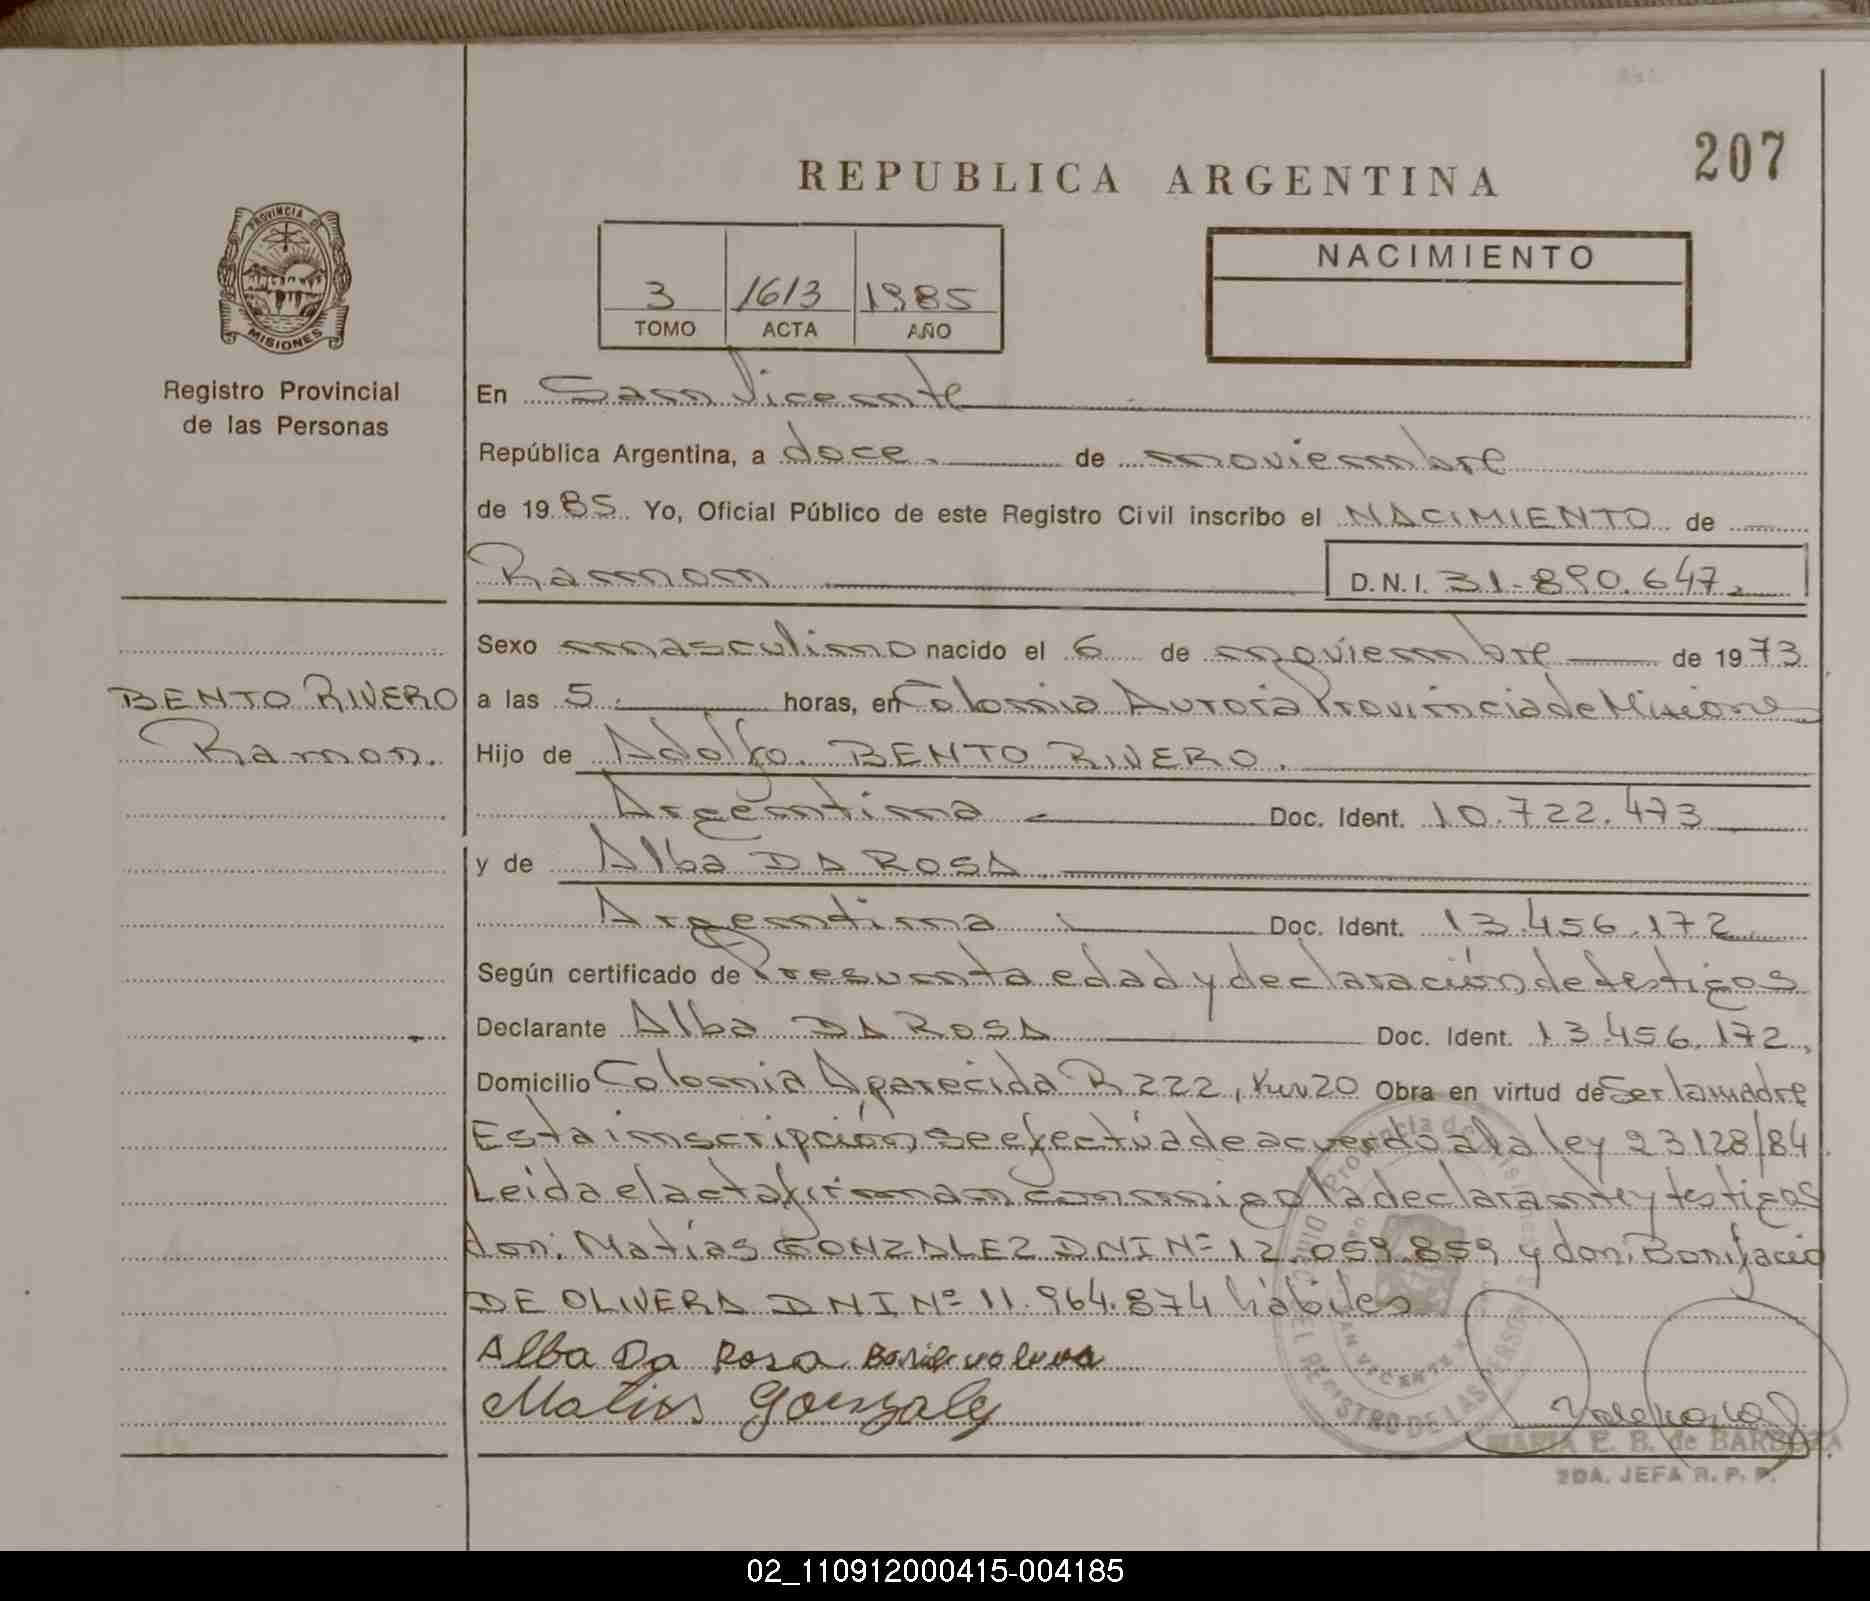 207
REPUBLICA ARGENTINA
PROVINCIA DE
MISIONES
Registro Provincial
de las Personas
3 1613 1985
TOMO ACTA AÑO
NACIMIENTO
En San Vicente
República Argentina, a doce. de noviembre
de 1985. Yo, Oficial Público de este Registro Civil inscribo el NACIMIENTO de
Ramon D.N.I. 31.890.647.
Sexo masculino nacido el 6 de noviembre de 1973
BENTO RIVERO
Ramon.
a las 5. horas, en Colonia Aurora Provincia de Misiones
Hijo de Adolfo. BENTO RIVERO.
Argentina Doc. Ident. 10.722.473
y de Alba DA ROSA.
Argentina. Doc. Ident. 13.456.172
Según certificado de Presunta edad y declaración de testigos
Declarante Alba DA ROSA Doc. Ident. 13.456.172,
Domicilio Colonia Aparecida R 222, Km 20 Obra en virtud de Ser la madre
Esta inscripción, se efectúa de acuerdo a la ley 23128/84.
Leida el acta firman conmigo la declarante y testigos
don: Matías GONZALEZ DNI Nº 12.059.859 y don: Bonifacio
DE OLIVERA DNI Nº 11.964.874 hábiles
Alba Da Rosa
Matias Gonzalez
MARIA E. B. de BARBOZA
2DA. JEFA R. P. P.
02_110912000415-004185